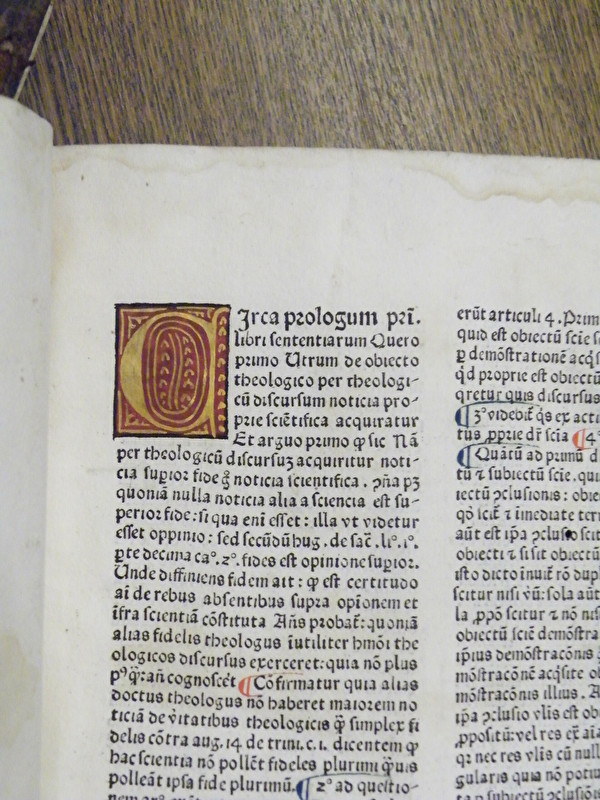 CIrca prologum pri̅.
libri sententiarum Quero
primo Utrum de obiecto
theologico per theologi-
cū discursum noticia pro-
prie sciētifica acquiratur
Et arguo primo ꝙ sic Nā
per theologicū discursuꝫ acquiritur noti-
cia supior fide g̊ noticia scientifica. ꝯña pꝫ
quoniā nulla noticia alia a sciencia est su-
perior fide: si qua eni̅ esset: illa vt videtur
esset oppinio: sed secūdū hug. de sac̄. li°. i°.
ꝑte decima ca°. 2°. fides est opinione supior.
Unde diffiniens fidem ait: ꝙ est certitudo
ai̅ de rebus absentibus supra opi̅onem et
i̅fra scientiā cōstituta Añs probat̄: quoniā
alias fidelis theologus i̅utiliter hmōi the
ologicos discursus exerceret: quia nō plus
añ cognoscēt ¶ Cōfirmatur quia alias
doctus theologus nō haberet maiorem no
ticiā de v̄itatibus theologicis ꝙ̄ simplex fi
delis cōtra aug. 14 de trini. c. i. dicentem ꝙ
hac scientia nō pollēt fideles plurimi ꝙ̄uis
polleāt ipsa fide plurimū. ¶ 2° ad questio-
erūt articuli 4. Prim
quid est obiectū scīe
ꝑ demōstrationē acq̄
q̄d proprie est obiectū
q̄retur quis discursus
¶ 3° videbit̄ q̄s ex acti
tus ꝓprie dr̄ scīa ¶ 4°
¶ Quātū ad primū d
tū ⁊ subiectū scīe. qui
iectū ꝯclusionis: obie
qō scit̄ ⁊ i̅mediate ter
aūt est ip̄a ꝯclusio scit
obiecti ⁊ si sit obiectū
isto dicto i̅nuit̄ rō dup
scitur nisi v̄ū: sola aūt
la ꝓpō scitur ⁊ nō nis
obiectū sciē demōstra
ip̄ius demōstracōnis
mōstracōnē acq̄site ob
mōstracōnis illius. A
ip̄a ꝯclusio vlis est ob
ꝓpositū: vel res ex̄ aīa
qꝛ nec res vlis cū null
gularis quia nō potiu